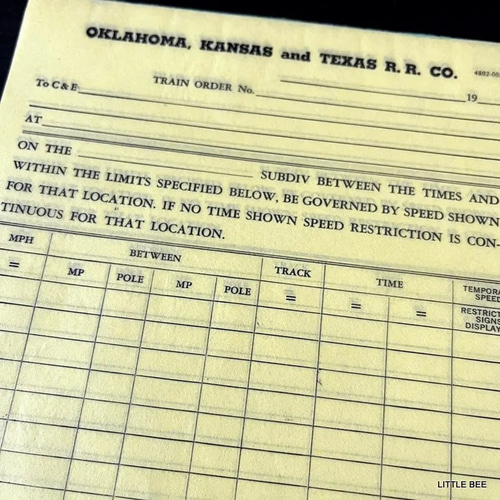 OKLAHOMA, KANSAS and TEXAS R. R. CO.
To C & E TRAIN ORDER No. 19
AT
ON THE SUBDIV BETWEEN THE TIMES AND
WITHIN THE LIMITS SPECIFIED BELOW, BE GOVERNED BY SPEED SHOWN
FOR THAT LOCATION. IF NO TIME SHOWN SPEED RESTRICTION IS CON-
TINUOUS FOR THAT LOCATION.
MPH BETWEEN TRACK TIME TEMPORA
SPEED
= MP POLE MP POLE = = = RESTRICT
SIGNS
DISPLAY
LITTLE BEE